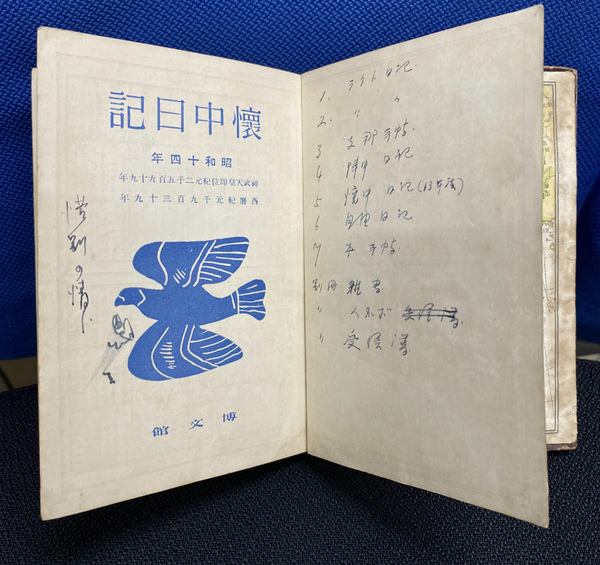 懷中日記
昭和十四年
神武天皇即位紀元二千五百九十九年
西曆紀元千九百三十九年
惜別の情
博文館
1. ライト日記.
2. 〃 〃
3 支那手帖.
4 陣中日記
5 懐中日記(13年版)
6 自由日記
7 本手帖.
別冊 雑書
〃
〃 受信簿.